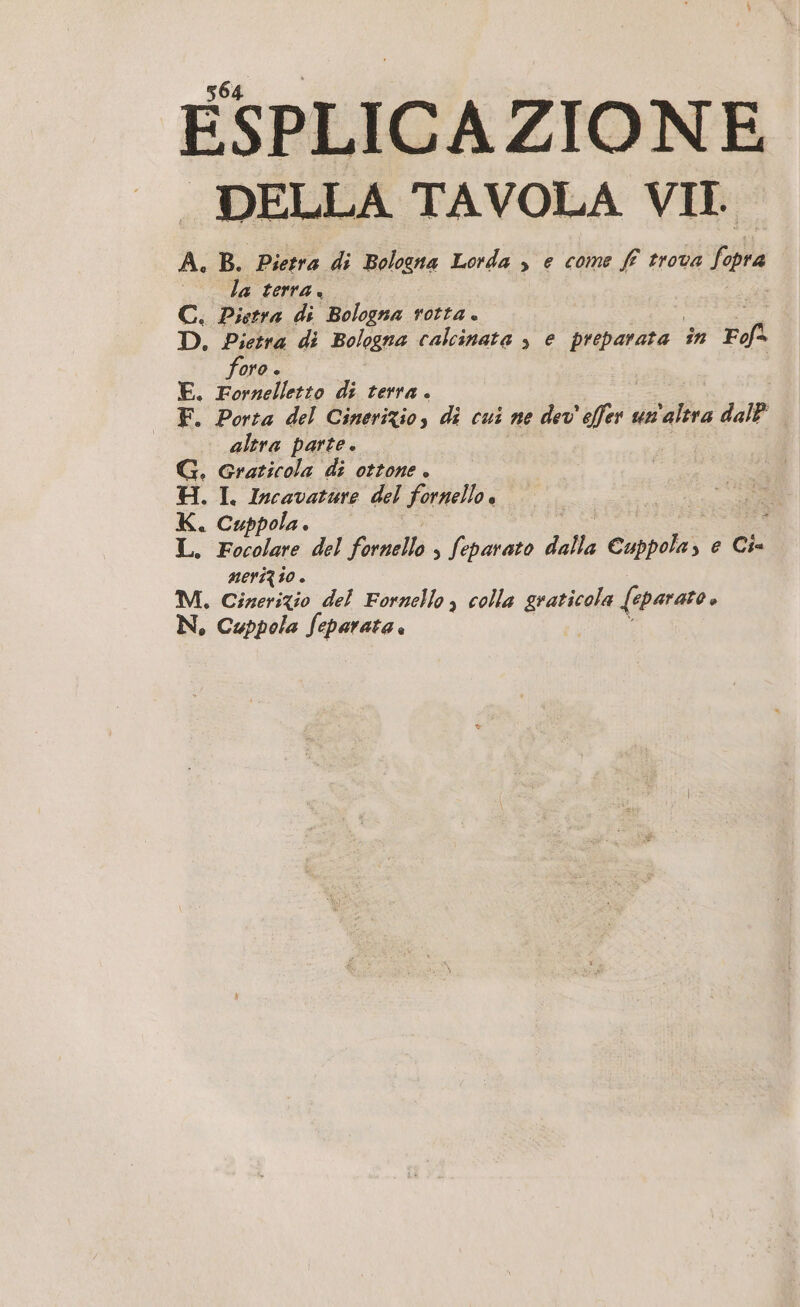 564
ESPLICAZIONE
DELLA TAVOLA VII.
A. B. Pietra di Bologna Lorda, e come ſi trova ſopra
la terra.
C. Pietra di Bologna rotta.
D. Pietra di Bologna calcinata, e preparata in Foſ-
foro.
E. Fornelletto di terra.
F. Porta del Cinerizio, di cui ne dev'eſſer un'altra dall'
altra parte.
G. Graticola di ottone.
H. I. Incavature del fornello.
K. Cuppola.
L. Focolare del fornello, ſeparato dalla Cuppola, e Ci-
nerizio.
M. Cinerizio del Fornello, colla graticola ſeparato.
N. Cuppola ſeparata.